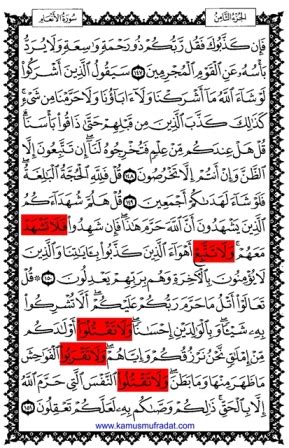 الجزء الثامن
سورة الأنعام
فَإِن كَذَّبُوكَ فَقُل رَّبُّكُمْ ذُو رَحْمَةٍ وَٰسِعَةٍ وَلَا يُرَدُّ
بَأْسُهُۥ عَنِ ٱلْقَوْمِ ٱلْمُجْرِمِينَ ١٤٧ سَيَقُولُ ٱلَّذِينَ أَشْرَكُوا۟
لَوْ شَآءَ ٱللَّهُ مَآ أَشْرَكْنَا وَلَآ ءَابَآؤُنَا وَلَا حَرَّمْنَا مِن شَىْءٍ ۚ
كَذَٰلِكَ كَذَّبَ ٱلَّذِينَ مِن قَبْلِهِمْ حَتَّىٰ ذَاقُوا۟ بَأْسَنَا ۗ
قُلْ هَلْ عِندَكُم مِّنْ عِلْمٍ فَتُخْرِجُوهُ لَنَآ ۖ إِن تَتَّبِعُونَ إِلَّا
ٱلظَّنَّ وَإِنْ أَنتُمْ إِلَّا تَخْرُصُونَ ١٤٨ قُلْ فَلِلَّهِ ٱلْحُجَّةُ ٱلْبَٰلِغَةُ ۖ
فَلَوْ شَآءَ لَهَدَىٰكُمْ أَجْمَعِينَ ١٤٩ قُلْ هَلُمَّ شُهَدَآءَكُمُ
ٱلَّذِينَ يَشْهَدُونَ أَنَّ ٱللَّهَ حَرَّمَ هَٰذَا ۖ فَإِن شَهِدُوا۟ فَلَا تَشْهَدْ
مَعَهُمْ ۚ وَلَا تَتَّبِعْ أَهْوَآءَ ٱلَّذِينَ كَذَّبُوا۟ بِـَٔايَٰتِنَا وَٱلَّذِينَ
لَا يُؤْمِنُونَ بِٱلْـَٔاخِرَةِ وَهُم بِرَبِّهِمْ يَعْدِلُونَ ١٥٠ ۞ قُلْ
تَعَالَوْا۟ أَتْلُ مَا حَرَّمَ رَبُّكُمْ عَلَيْكُمْ ۖ أَلَّا تُشْرِكُوا۟
بِهِۦ شَيْـًٔا ۖ وَبِٱلْوَٰلِدَيْنِ إِحْسَٰنًا ۖ وَلَا تَقْتُلُوٓا۟ أَوْلَٰدَكُم
مِّنْ إِمْلَٰقٍ ۖ نَّحْنُ نَرْزُقُكُمْ وَإِيَّاهُمْ ۖ وَلَا تَقْرَبُوا۟ ٱلْفَوَٰحِشَ
مَا ظَهَرَ مِنْهَا وَمَا بَطَنَ ۖ وَلَا تَقْتُلُوا۟ ٱلنَّفْسَ ٱلَّتِى حَرَّمَ ٱللَّهُ
إِلَّا بِٱلْحَقِّ ۚ ذَٰلِكُمْ وَصَّىٰكُم بِهِۦ لَعَلَّكُمْ تَعْقِلُونَ ١٥١
www.kamusmufradat.com